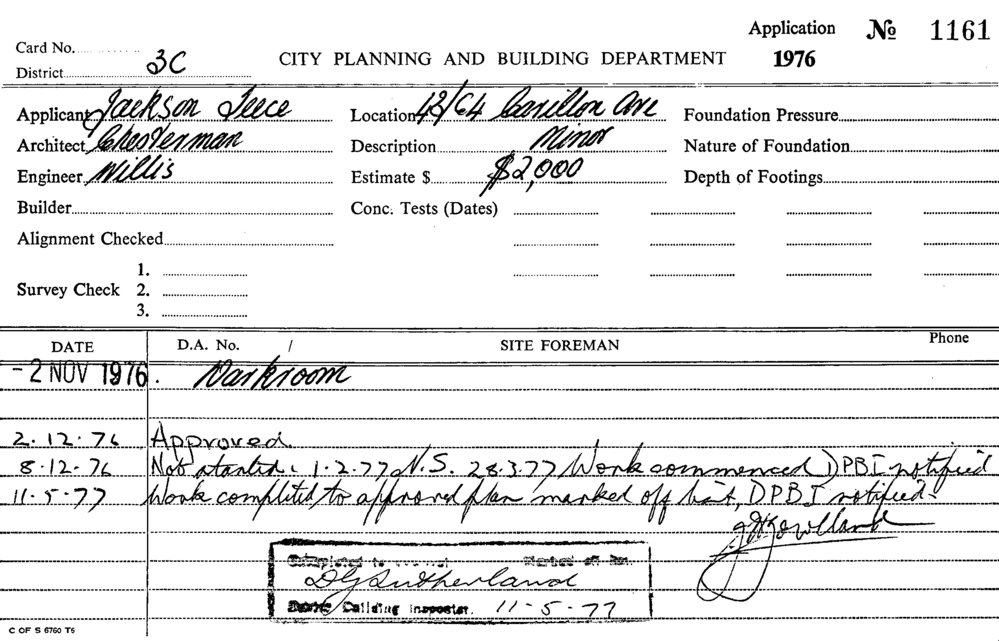 Application No 1161
Card No.
District 3C
CITY PLANNING AND BUILDING DEPARTMENT
1976
Applicant Jackson Teece
Location 42/64 Carillon Ave
Foundation Pressure
Architect Chesterman
Description Minor
Nature of Foundation
Engineer Willis
Estimate $ $2,000
Depth of Footings
Builder
Conc. Tests (Dates)
Alignment Checked
1.
Survey Check 2.
3.
DATE D.A. No. / SITE FOREMAN Phone
- 2 NOV 1976. Darkroom
2.12.76 Approved.
8.12.76 Not started. 1-2.77 N.S. 28.3.77 Work commenced DPBI notified
11-5-77 Work completed to approved plan marked off list, DPBI notified.
Completed to Marked off
D G Sutherland
Building Inspector. 11-5-77
C OF S 6760 T6